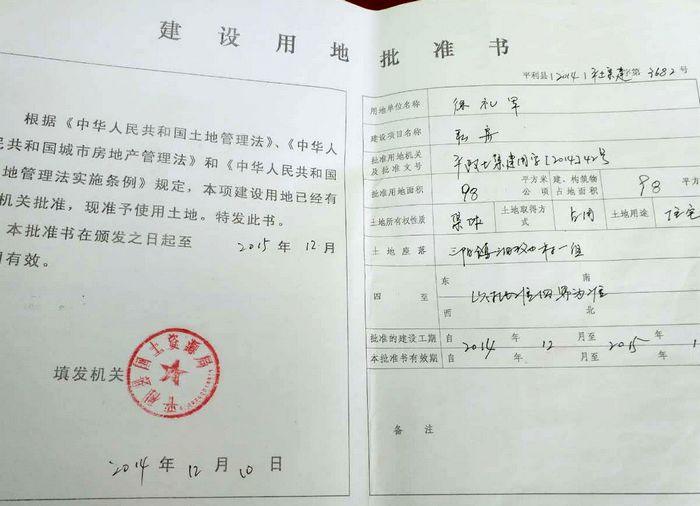 建设用地批准书
根据《中华人民共和国土地管理法》、《中华人
民共和国城市房地产管理法》和《中华人民共和国
地管理法实施条例》规定，本项建设用地已经有
机关批准，现准予使用土地。特发此书。
本批准书在颁发之日起至 2015 年 12 月
有效。
平利县国土资源局
填发机关
2014 年 12 月 10 日
平利县[2014]平土集建字第3682号
用地单位名称 徐礼军
建设项目名称
批准用地机关及批准文号 平政土集建用字[2014]42号
批准用地面积 98 平方米 公顷 建、构筑物占地面积 98 平方
土地所有权性质 集体 土地取得方式 占用 土地用途 住宅
土地座落 三阳镇 村一组
四至 东 南
以实地四界为准
西 北
批准的建设工期 自 年 月至 年
2014 12 2015 1
本批准书有效期 自 年 月至 年
备注